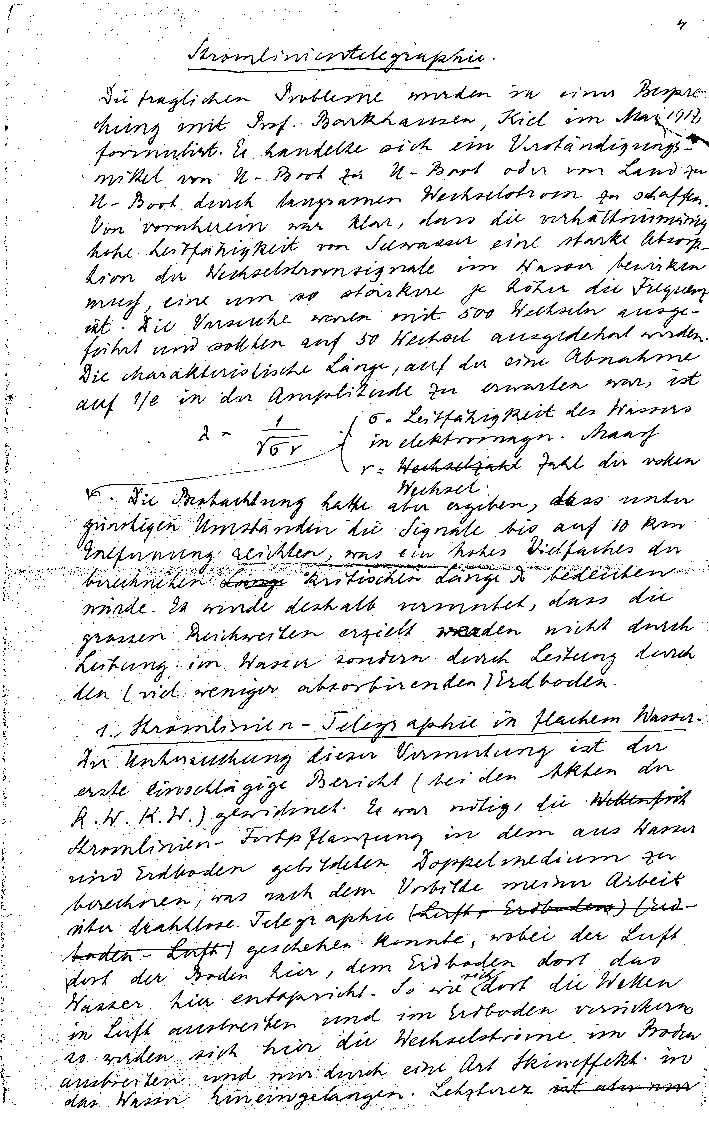 4
Stromlinientelegraphie.
Die fraglichen Probleme wurden in einer Bespre-
chung mit Prof. Barkhausen, Kiel im Mai 1917
formuliert. Es handelte sich ein Verständigungs-
mittel von U-Boot zu U-Boot oder von Land zu
U-Boot durch langsamen Wechselstrom zu schaffen.
Von vornherein war klar, dass die verhältnismässig
hohe Leitfähigkeit von Seewasser eine starke Absorp-
tion der Wechselstromsignale im Wasser bewirken
muss, eine um so stärkere je höher die Frequenz
ist. Die Versuche waren mit 500 Wechseln ausge-
führt und sollten auf 50 Wechsel ausgedehnt werden.
Die charakteristische Länge, auf der eine Abnahme
auf 1/e in der Amplitude zu erwarten war, ist
λ = 1/√σν { σ = Leitfähigkeit des Wassers
in elektromagn. Maass
ν = Wechselzahl Zahl der vollen
Wechsel.
Die Beobachtung hatte aber ergeben, dass unter
günstigen Umständen die Signale bis auf 10 km
Entfernung reichten, was ein hohes Vielfaches der
berechneten Länge kritischen Länge λ bedeuten
würde. Es wurde deshalb vermutet, dass die
grossen Reichweiten erzielt werden nicht durch
Leitung im Wasser sondern durch Leitung durch
den (viel weniger absorbirenden) Erdboden.
1. Stromlinien-Telegraphie in flachem Wasser.
Der Untersuchung dieser Vermutung ist der
erste einschlägige Bericht (bei den Akten der
K.W.K.W.) gewidmet. Es war nötig, die
Stromlinien-Fortpflanzung in dem aus Wasser
und Erdboden gebildeten Doppelmedium zu
berechnen, was nach dem Vorbilde meiner Arbeit
über drahtlose Telegraphie (Luft, Erdboden) (Erd-
boden-Luft) geschehen konnte, wobei der Luft
dort der Boden hier, dem Erdboden dort das
Wasser hier entspricht. So wie sich dort die Wellen
in Luft ausbreiten und im Erdboden versickern
so werden sich hier die Wechselströme im Boden
ausbreiten und nur durch eine Art Skineffekt in
das Wasser hineingelangen. Letzterer ist aber nur